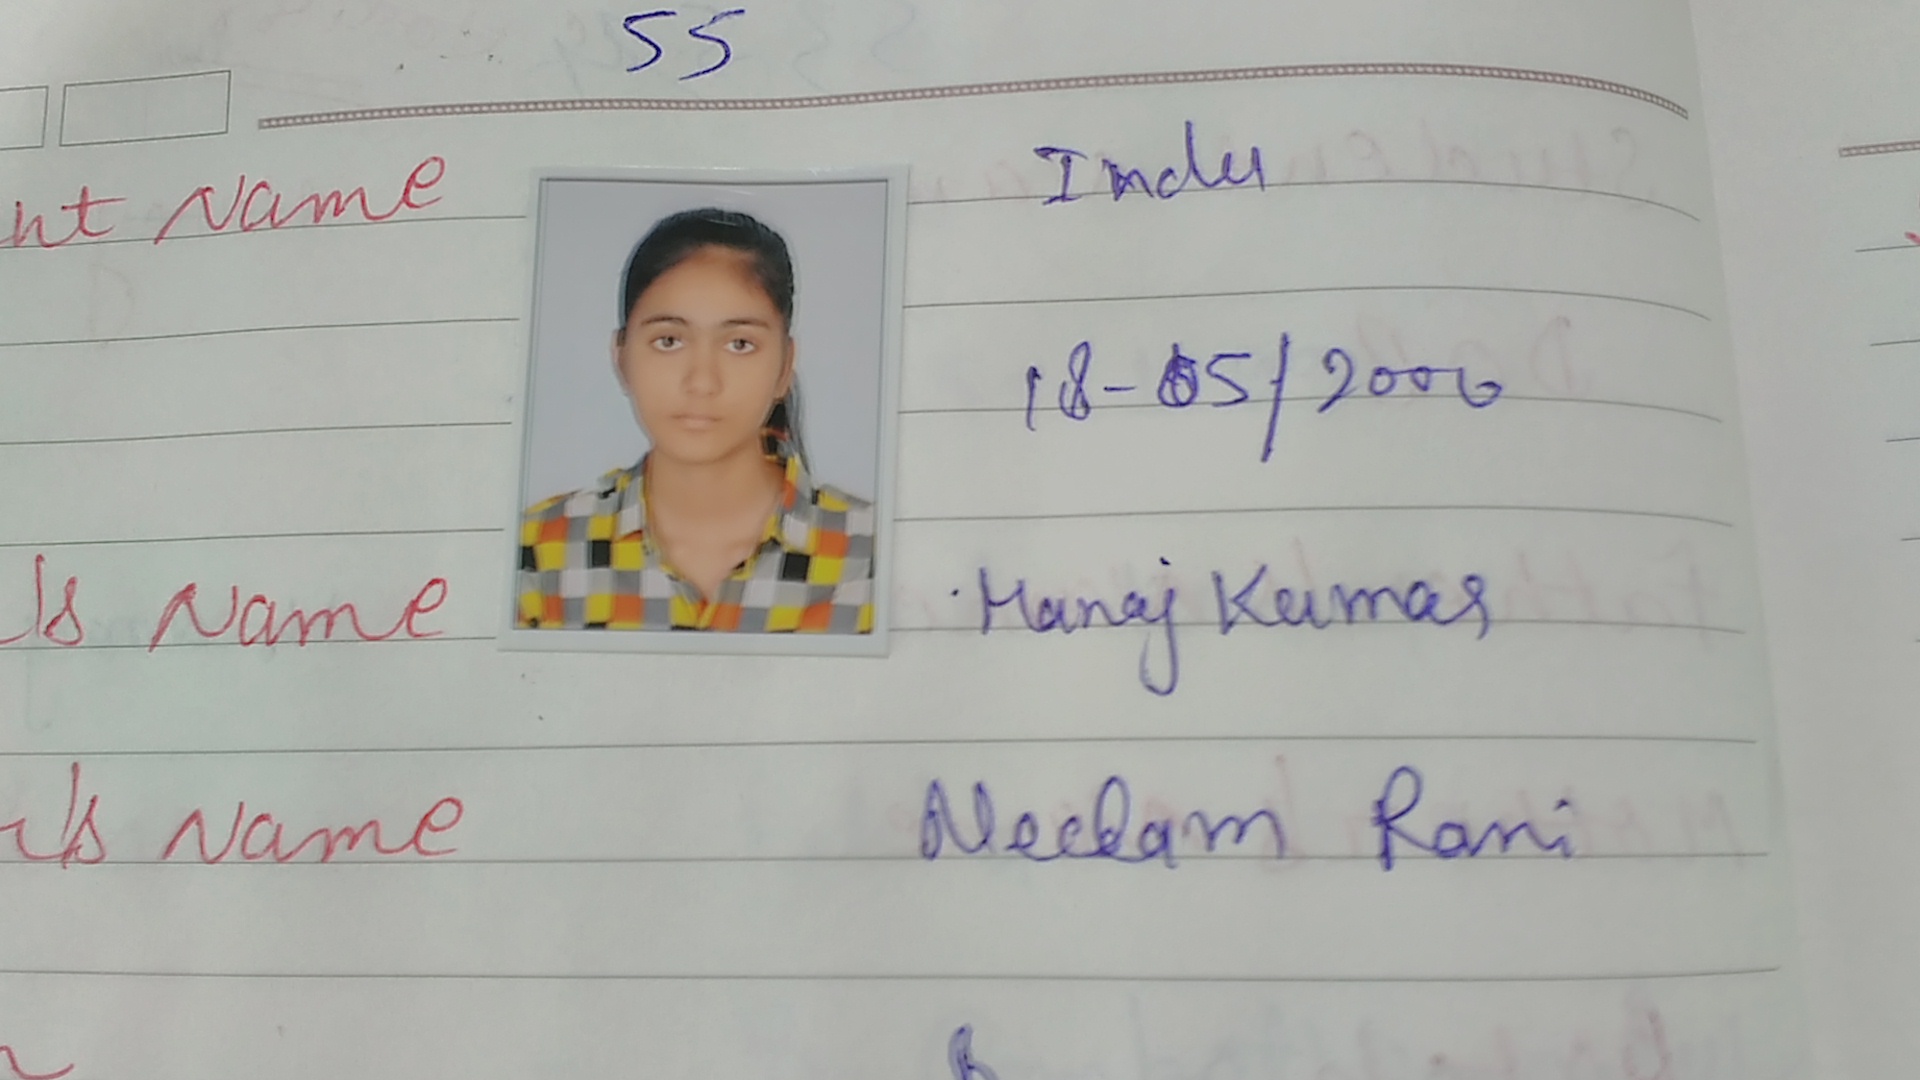 55
nt Name Indu
18-05/2000
's Name Manoj Kumar
r's Name Neelam Rani